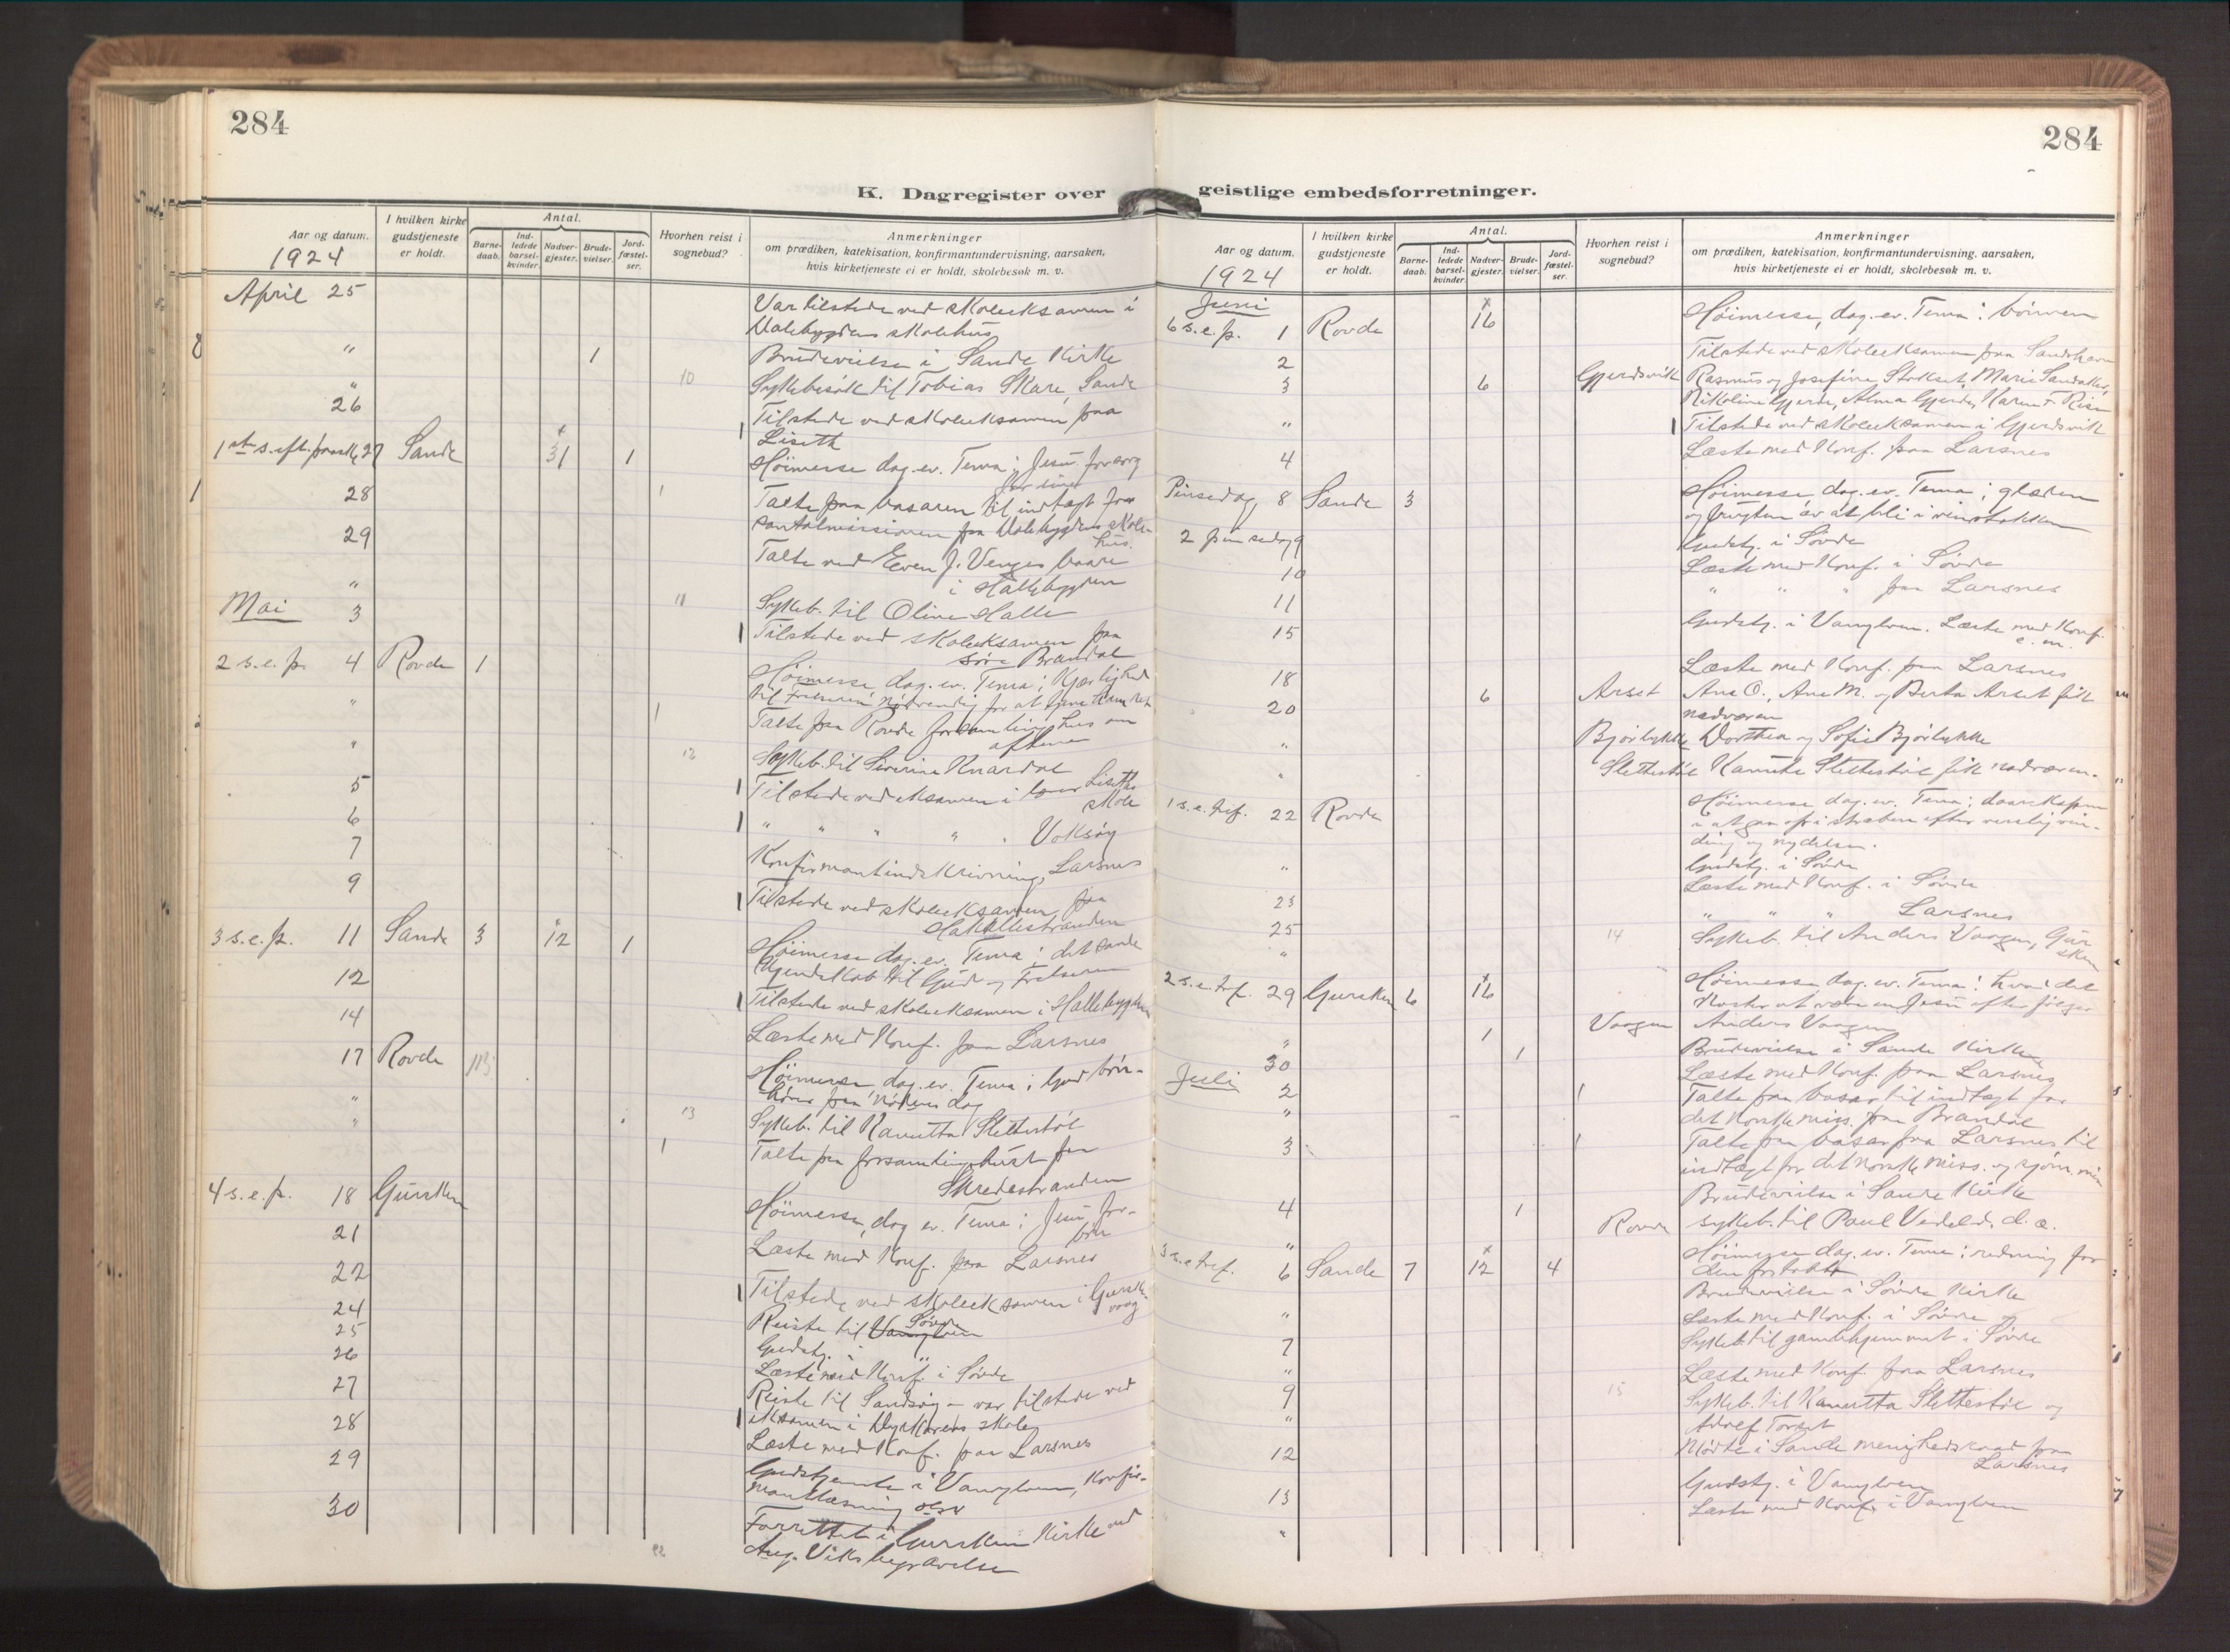 284
284
K. Dagregister over geistlige embedsforretninger.
Aar og datum.
1924
I hvilken kirke gudstjeneste er holdt.
Antal.
Barne-daab.
Ind-ledede barsel-kvinder.
Nadver-gjester.
Brude-vielser.
Jord-fæstel-ser.
Hvorhen reist i sognebud?
Anmerkninger
om prædiken, katekisation, konfirmantundervisning, aarsaken,
hvis kirketjeneste ei er holdt, skolebesøk m. v.
April 25 Var tilstede ved skoleeksamen i
skolehus
" 1 Brudevielse i Sande Kirke
" 10 Sykebesøk til Tobias Skare, Sande
26 Tilstede ved skoleeksamen paa
Liseth
1ste s. eft. paaske 27 Sande 31 1 Høimesse dag. ev. Tema: Jesu forsorg
for sine
28 1 Talte paa basaren til indtægt for
santalmissionen paa skole-
hus.
29 Talte ved Even J. Venges baare
i Hallebygden
" 11 Sykeb. til Oline Halle
Mai 3 Tilstede ved skoleeksamen paa
søre Brandal
2 s. e. p. 4 Rovde 1 Høimesse dag. ev. Tema: Kjærlighed
til Frelseren nødvendig for at tjene ham ret
" 1 Talte paa Rovde forsamlingshus om
aftenen
" 12 Sykeb. til Severine Knardal
5 Tilstede ved eksamen i Liseths
skole
6 " " " " " Voksøy
7 Konfirmantindskrivning, Larsnes
9 Tilstede ved skoleeksamen paa
Hakallestranden
3 s. e. p. 11 Sande 3 12 1 Høimesse dag. ev. Tema: det sande
kjendskab til Gud og Frelseren
12 Tilstede ved skoleeksamen i Hallebygden
14 Læste med Konf. paa Larsnes
17 Rovde Høimesse, dag. ev. Tema: Gud bøn-
hører paa nødens dag
" 13 Sykeb. til Kanutta Slettestøl
" 1 Talte paa forsamlingshuset paa
Skredestranden
4 s. e. p. 18 Gursken Høimesse, dag ev. Tema: Jesu for-
bøn
21 Læste med Konf. paa Larsnes
22 Tilstede ved skoleeksamen i Gursk-
vaag
24 Reiste til Vanylven Søvde
25 Gudstj. i "
26 Læste med Konf. i Søvde
27 Reiste til Sandsøy - var tilstede ved
eksamen i skole
28 Læste med Konf. paa Larsnes
29 Gudstjeneste i Vanylven, Konfir-
mantlæsning
30 Forrettet i Gursken Kirke ved
Aug. Viks begravelse
Aar og datum.
1924
I hvilken kirke gudstjeneste er holdt.
Antal.
Barne-daab.
Ind-ledede barsel-kvinder.
Nadver-gjester.
Brude-vielser.
Jord-fæstel-ser.
Hvorhen reist i sognebud?
Anmerkninger
om prædiken, katekisation, konfirmantundervisning, aarsaken,
hvis kirketjeneste ei er holdt, skolebesøk m. v.
Juni
6 s. e. p. 1 Rovde 16 Høimesse, dag. ev. Tema: bønnen
2 Tilstede ved skoleeksamen paa Sandshavn
3 6 Gjerdsvik Rasmus og Josefine Stokset, Marie
Nikoline Gjerde, Alma Gjerde, Karen
" Tilstede ved skoleeksamen i Gjerdsvik
4 Læste med Konf. paa Larsnes
Pinsedag 8 Sande 3 Høimesse dag. ev. Tema: glæden
og frugten av at bli i vinstokken
2 pinsedag 9 Gudstj. i Søvde
10 Læste med Konf. i Søvde
11 " " " paa Larsnes
15 Gudstj. i Vanylven. Læste med Konf.
e. m.
18 Læste med Konf. paa Larsnes
20 6 Arset Ane O., Ane M. og Berta Arset fik
nadveren
" Bjørlykke Dorthea og Sofie Bjørlykke
" Slettestøl Kanutta Slettestøl fik nadveren.
1 s. e. tref. 22 Rovde Høimesse dag. ev. Tema: daarskapen
i at gaa op i stræben efter verslig vin-
ding og nydelse.
" Gudstj. i Søvde
23 Læste med Konf. i Søvde
25 " " " Larsnes
" 14 Sykeb. til Anders Vaagen, Gur-
sken
2 s. e. tref. 29 Gursken 6 16 Høimesse dag. ev. Tema: hvad det
koster at være en Jesu efterfølger
" 1 Vaagen Anders Vaagen
30 1 Brudevielse i Sande Kirke
Juli 2 Læste med Konf. paa Larsnes
" 1 Talte paa basar til indtægt for
det norske miss. paa Brandal
3 1 Talte paa basar paa Larsnes til
indtægt for det norske miss. og sjøm. mis
4 1 Brudevielse i Sande Kirke
" Rovde Sykeb. til Paul Vedeld d. æ.
3 s. e. tref. 6 Sande 7 12 4 Høimesse dag. ev. Tema: redning for
den fortabte
" Brudevielse i Søvde Kirke
7 Læste med Konf. i Søvde og
" Sykeb. til gamlehjemmet i Søvde
9 Læste med Konf. paa Larsnes
" 15 Sykeb. til Kanutta Slettestøl og
Adolf Torset
12 Møtte i Sande menighedsraad paa
Larsnes
13 Gudstj. i Vanylven
" Læste med Konf. i Vanylven